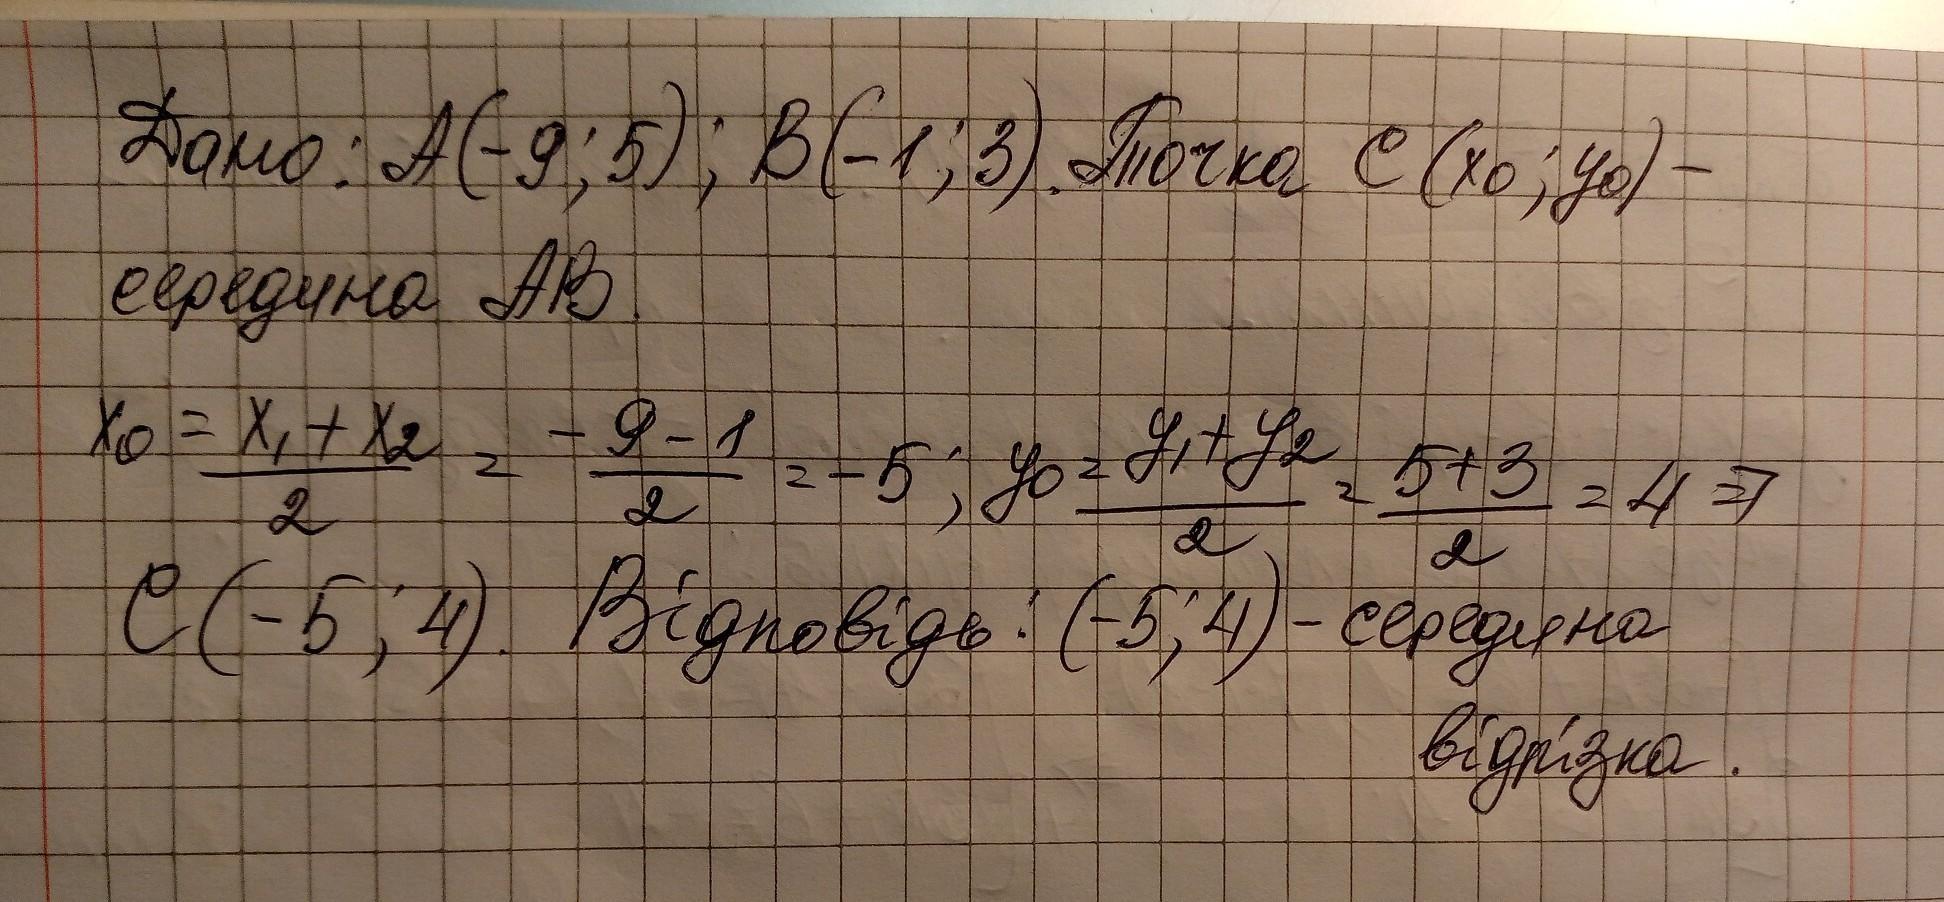 Дано: A(-9; 5); B(-1; 3). Точка C(x₀; y₀) -
середина AB.
x₀ = (x₁ + x₂)/2 = (-9-1)/2 = -5; y₀ = (y₁+y₂)/2 = (5+3)/2 = 4 ⇒
C(-5; 4). Відповідь: (-5; 4) - середина
відрізка.